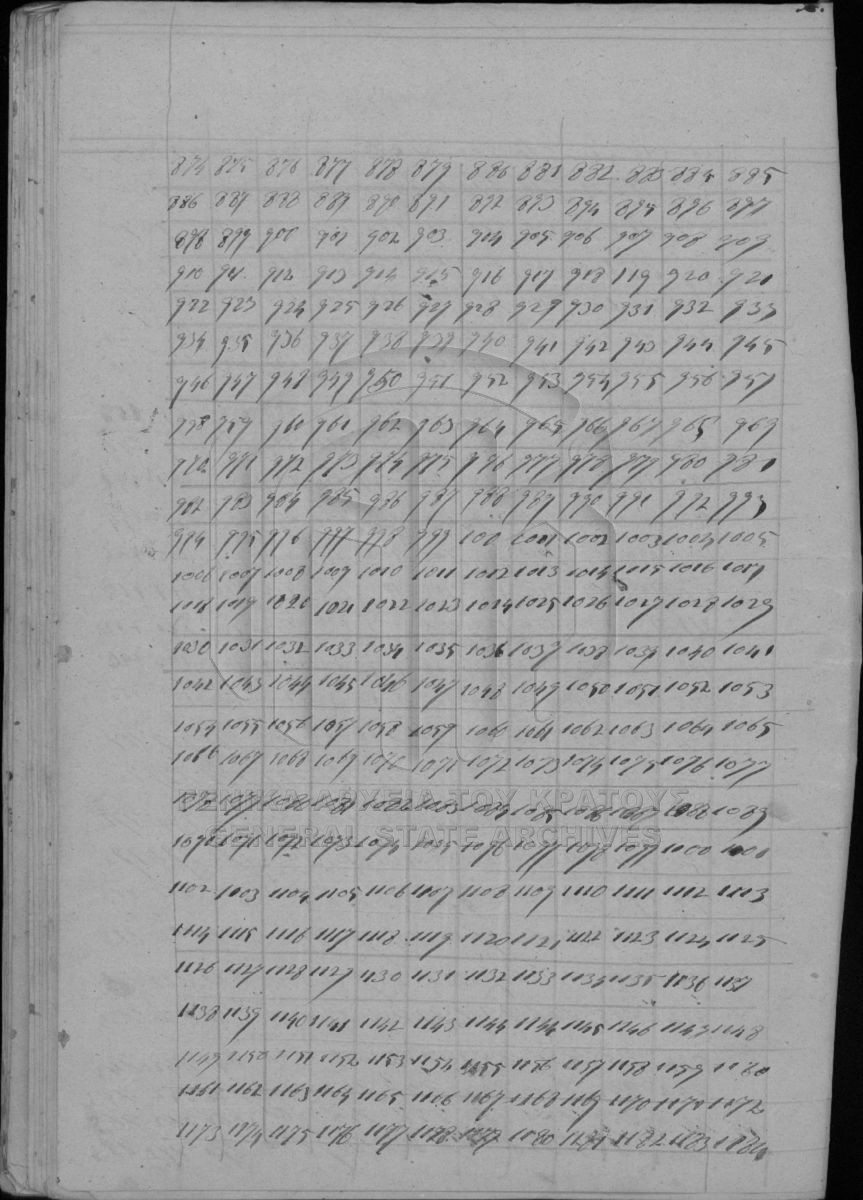 874 875 876 877 878 879 880 881 882 883 884 885
886 887 888 889 890 891 892 893 894 895 896 897
898 899 900 901 902 903 904 905 906 907 908 909
910 911 912 913 914 915 916 917 918 119 920 921
922 923 924 925 926 927 928 929 930 931 932 933
934 935 936 937 938 939 940 941 942 943 944 945
946 947 948 949 950 951 952 953 954 955 956 957
958 959 960 961 962 963 964 965 966 967 968 969
970 971 972 973 974 975 976 977 978 979 980 981
982 983 984 985 986 987 988 989 990 991 992 993
994 995 996 997 998 999 100 1001 1002 1003 1004 1005
1006 1007 1008 1009 1010 1011 1012 1013 1014 1015 1016 1017
1018 1019 1020 1021 1022 1023 1024 1025 1026 1027 1028 1029
1030 1031 1032 1033 1034 1035 1036 1037 1038 1039 1040 1041
1042 1043 1044 1045 1046 1047 1048 1049 1050 1051 1052 1053
1054 1055 1056 1057 1058 1059 1060 1061 1062 1063 1064 1065
1066 1067 1068 1069 1070 1071 1072 1073 1074 1075 1076 1077
1081 1083 1084 1085 1088 1089
ΑΡΧΕΙΑ ΤΟΥ ΚΡΑΤΟΥΣ
GENERAL STATE ARCHIVES
1102 1103 1104 1105 1106 1107 1108 1109 1110 1111 1112 1113
1114 1115 1116 1117 1118 1119 1120 1121 1122 1123 1124 1125
1126 1127 1128 1129 1130 1131 1132 1133 1134 1135 1136 1137
1138 1139 1140 1141 1142 1143 1144 1144 1145 1146 1147 1148
1149 1150 1151 1152 1153 1154 1155 1156 1157 1158 1159 1160
1161 1162 1163 1164 1165 1166 1167 1168 1169 1170 1170 1172
1173 1174 1175 1176 1177 1178 1179 1180 1181 1182 1183 1184